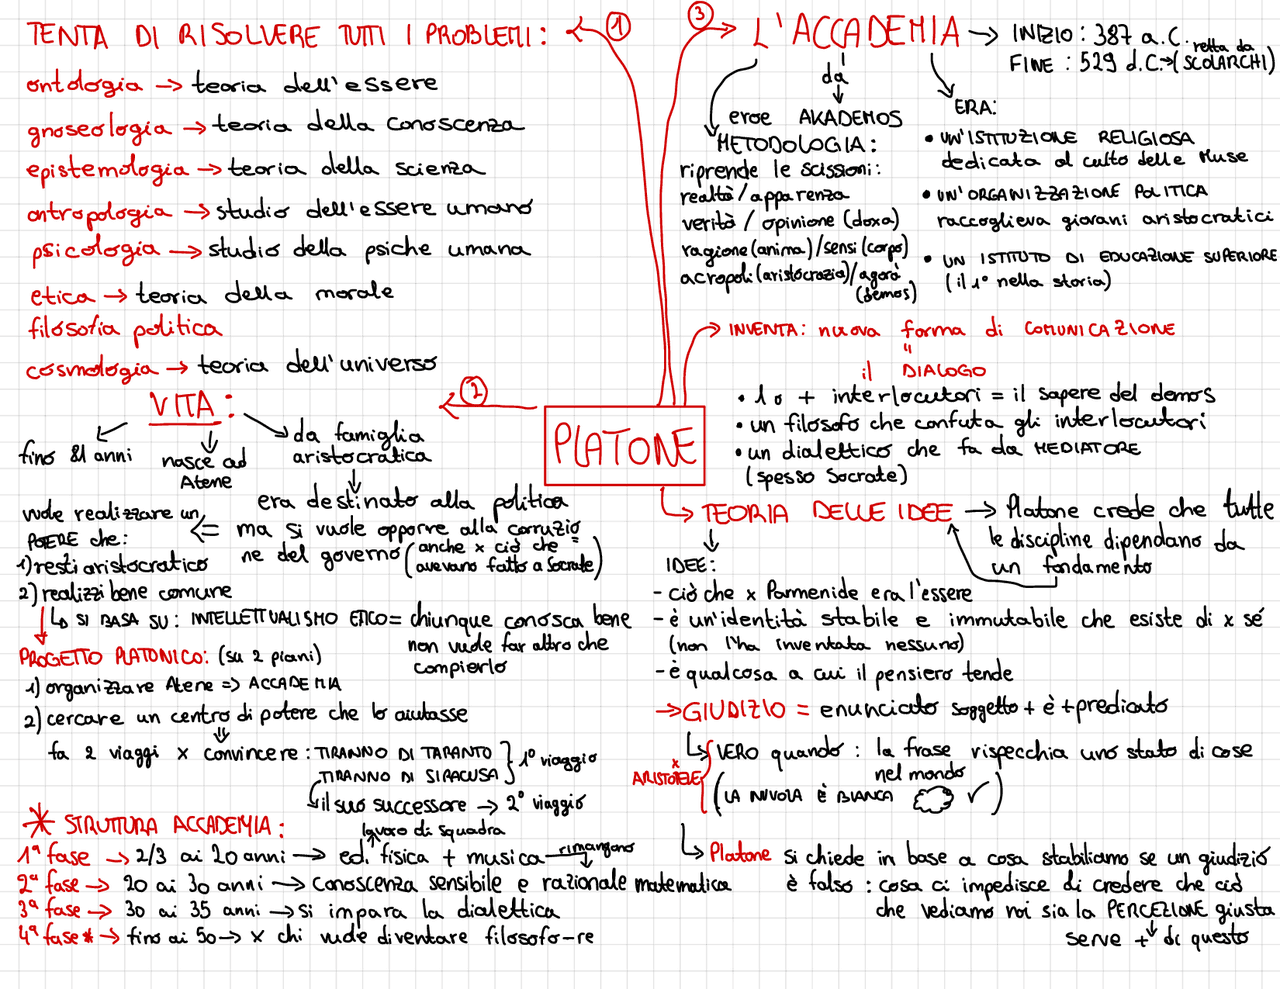 TENTA DI RISOLVERE TUTTI I PROBLEMI: ← 1
ontologia → teoria dell'essere
gnoseologia → teoria della conoscenza
epistemologia → teoria della scienza
antropologia → studio dell'essere umano
psicologia → studio della psiche umana
etica → teoria della morale
filosofia politica
cosmologia → teoria dell'universo
PLATONE
2
VITA:
fino 81 anni
nasce ad
Atene
da famiglia
aristocratica
era destinato alla politica
ma si vuole opporre alla corruzio=
ne del governo (anche x ciò che
avevano fatto a Socrate)
vuole realizzare un
POTERE che:
1) resti aristocratico
2) realizzi bene comune
↳ SI BASA SU: INTELLETTUALISMO ETICO = chiunque conosca bene
non vuole far altro che
compierlo
PROGETTO PLATONICO: (su 2 piani)
1) organizzare Atene => ACCADEMIA
2) cercare un centro di potere che lo aiutasse
fa 2 viaggi x convincere: TIRANNO DI TARANTO
TIRANNO DI SIRACUSA } 1° viaggio
il suo successore → 2° viaggio
* STRUTTURA ACCADEMIA:
lavoro di squadra
1ª fase → 2/3 ai 20 anni → ed. fisica + musica rimangono
2ª fase → 20 ai 30 anni → conoscenza sensibile e razionale matematica
3ª fase → 30 ai 35 anni → si impara la dialettica
4ª fase* → fino ai 50 → x chi vuole diventare filosofo-re
3
L'ACCADEMIA → INIZIO: 387 a.C.
FINE: 529 d.C. → (retta da SCOLARCHI)
da
eroe AKADEMOS
METODOLOGIA:
riprende le scissioni:
realtà/apparenza
verità / opinione (doxa)
ragione (anima)/sensi (corpo)
acropoli (aristocrazia)/agorà
(demos)
ERA:
• UN'ISTITUZIONE RELIGIOSA
dedicata al culto delle Muse
• UN'ORGANIZZAZIONE POLITICA
raccoglieva giovani aristocratici
• UN ISTITUTO DI EDUCAZIONE SUPERIORE
(il 1° nella storia)
INVENTA: nuova forma di COMUNICAZIONE
"
il DIALOGO
• 1 o + interlocutori = il sapere del demos
• un filosofo che confuta gli interlocutori
• un dialettico che fa da MEDIATORE
(spesso Socrate)
TEORIA DELLE IDEE → Platone crede che tutte
le discipline dipendano da
un fondamento
IDEE:
- ciò che x Parmenide era l'essere
- è un'identità stabile e immutabile che esiste di x sé
(non l'ha inventata nessuno)
- è qualcosa a cui il pensiero tende
→ GIUDIZIO = enunciato soggetto + è + predicato
x
ARISTOTELE
VERO quando: la frase rispecchia uno stato di cose
nel mondo
(LA NUVOLA È BIANCA ✓)
Platone si chiede in base a cosa stabiliamo se un giudizio
è falso: cosa ci impedisce di credere che ciò
che vediamo noi sia la PERCEZIONE giusta
serve + di questo